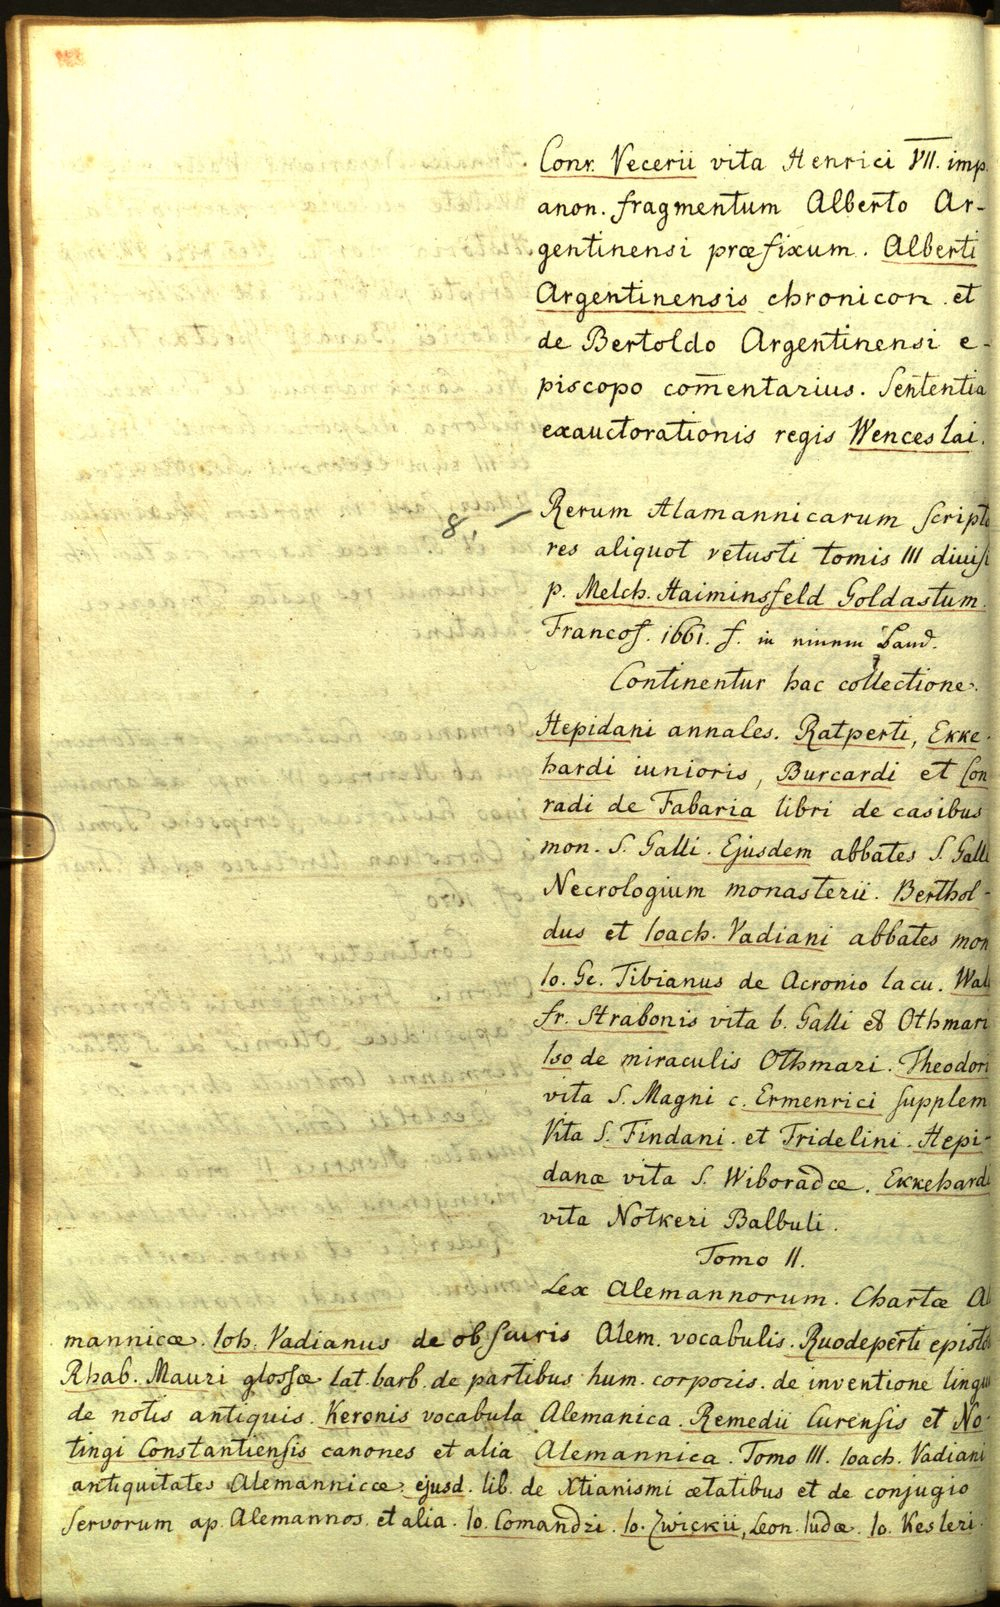 Conr. Vecerii vita Henrici VII. imp.
anon. fragmentum Alberto Ar-
gentinensi præfixum. Alberti
Argentinensis chronicon et
de Bertoldo Argentinensi e-
piscopo com̄entarius. Sententia
exauctorationis regis Wenceslai.
8. — Rerum Alamannicarum Scripto
res aliquot vetusti tomis III divisi
p. Melch. Haiminsfeld Goldastum.
Francof. 1661. f. in einem Band.
Continentur hac collectione.
Hepidani annales. Ratperti, Ekke-
hardi iunioris, Burcardi et Con
radi de Fabaria libri de casibus
mon. S. Galli. Ejusdem abbates S. Galli
Necrologium monasterii. Berthol-
dus et Ioach. Vadiani abbates mon
Io. Ge. Tibianus de Acronio lacu. Wal
fr. Strabonis vita b. Galli et Othmari
Iso de miraculis Othmari. Theodori
vita S. Magni c. Ermenrici supplem
Vita S. Findani. et Fridelini. Hepi-
danæ vita S. Wiboradæ. Ekkehardi
vita Notkeri Balbuli.
Tomo II.
Lex Alemannorum. Chartæ Al
mannicæ. Ioh. Vadianus de obscuris Alem. vocabulis. Ruodeperti episto
Rhab. Mauri glossæ lat. barb. de partibus hum. corporis. de inventione lingu
de notis antiquis. Keronis vocabula Alemanica. Remedii Curensis et No-
tingi Constantiensis canones et alia Alemannica. Tomo III. Ioach. Vadiani
antiquitates Alemannicæ. ejusd. lib. de Xtianismi ætatibus et de conjugio
servorum ap. Alemannos. et alia. Io. Comandri. Io. Zwickii, Leon. Iudæ. Io. Kesleri.